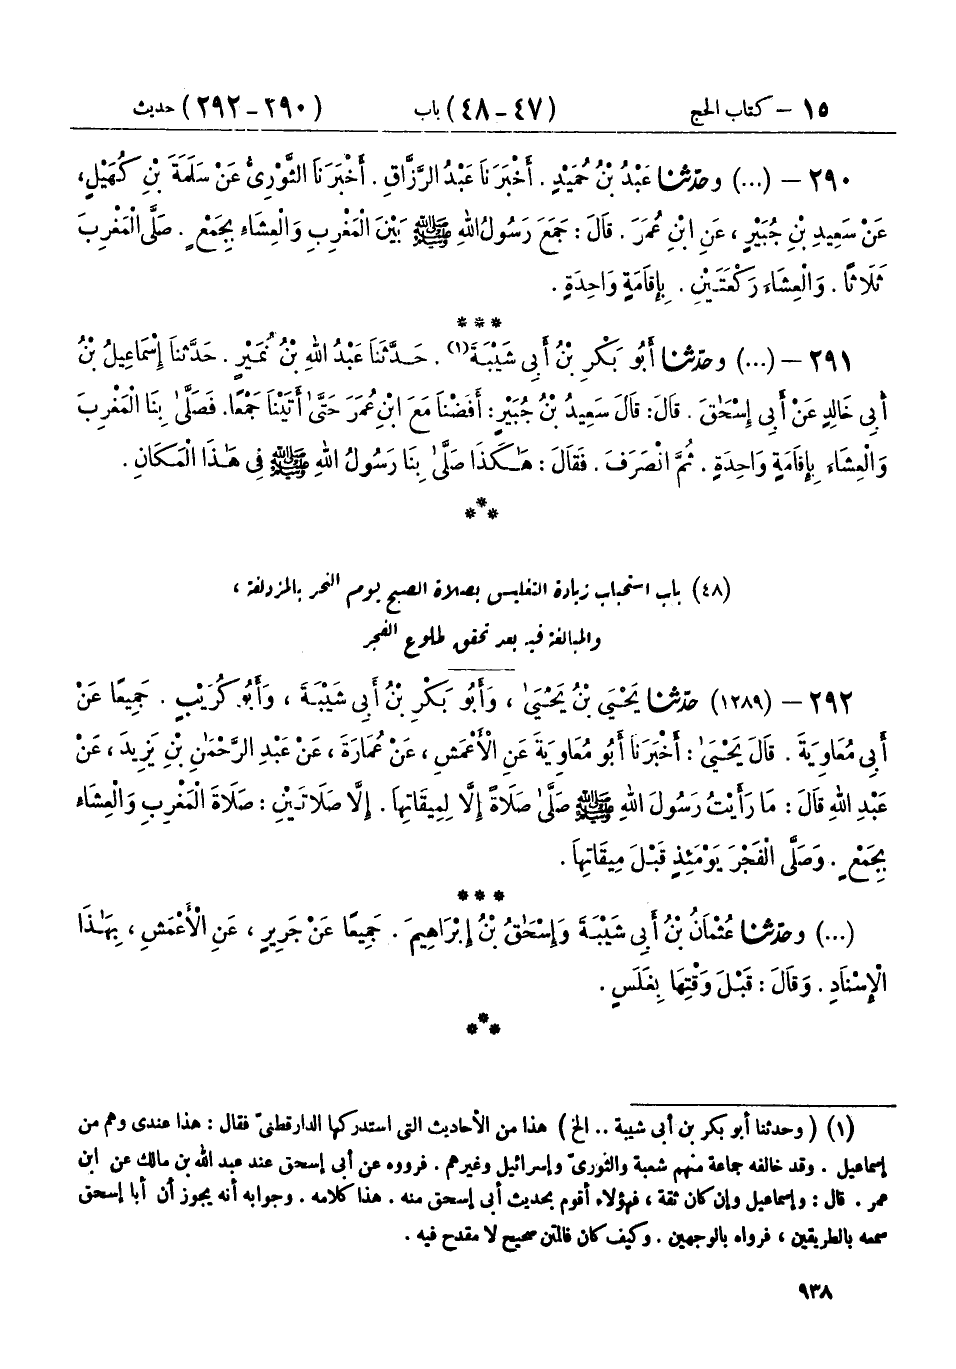 ١٥ – كتاب الحج (٤٧ – ٤٨) باب (٢٩٠ – ٢٩٢) حديث
٢٩٠ – (...) وحدّثنا عَبْدُ بْنُ حُمَيْدٍ . أَخْبَرَنَا عَبْدُ الرَّزَّاقِ . أَخْبَرَنَا الثَّوْرِيُّ عَنْ سَلَمَةَ بْنِ كُهَيْلٍ،
عَنْ سَعِيدِ بْنِ جُبَيْرٍ ، عَنِ ابْنِ عُمَرَ . قَالَ : جَمَعَ رَسُولُ اللهِ ﷺ بَيْنَ الْمَغْرِبِ وَالْعِشَاءِ بِجَمْعٍ . صَلَّى الْمَغْرِبَ
ثَلَاثًا . وَالْعِشَاءَ رَكْعَتَيْنِ . بِإِقَامَةٍ وَاحِدَةٍ .
* * *
٢٩١ – (...) وحدّثنا أَبُو بَكْرِ بْنُ أَبِي شَيْبَةَ(١) . حَدَّثَنَا عَبْدُ اللهِ بْنُ نُمَيْرٍ . حَدَّثَنَا إِسْمَاعِيلُ بْنُ
أَبِي خَالِدٍ عَنْ أَبِي إِسْحَاقَ . قَالَ: قَالَ سَعِيدُ بْنُ جُبَيْرٍ: أَفَضْنَا مَعَ ابْنِ عُمَرَ حَتَّىٰ أَتَيْنَا جَمْعًا. فَصَلَّىٰ بِنَا الْمَغْرِبَ
وَالْعِشَاءَ بِإِقَامَةٍ وَاحِدَةٍ . ثُمَّ انْصَرَفَ . فَقَالَ : هٰكَذَا صَلَّىٰ بِنَا رَسُولُ اللهِ ﷺ فِي هٰذَا الْمَكَانِ .
***
(٤٨) باب استحباب زيادة التغليس بصلاة الصبح يوم النحر بالمزدلفة ،
والمبالغة فيه بعد تحقق طلوع الفجر
٢٩٢ – (١٢٨٩) حدّثنا يَحْيَىٰ بْنُ يَحْيَىٰ ، وَأَبُو بَكْرِ بْنُ أَبِي شَيْبَةَ ، وَأَبُو كُرَيْبٍ . جَمِيعًا عَنْ
أَبِي مُعَاوِيَةَ . قَالَ يَحْيَىٰ : أَخْبَرَنَا أَبُو مُعَاوِيَةَ عَنِ الْأَعْمَشِ ، عَنْ عُمَارَةَ ، عَنْ عَبْدِ الرَّحْمٰنِ بْنِ يَزِيدَ ، عَنْ
عَبْدِ اللهِ قَالَ : مَا رَأَيْتُ رَسُولَ اللهِ ﷺ صَلَّىٰ صَلَاةً إِلَّا لِمِيقَاتِهَا . إِلَّا صَلَاتَيْنِ : صَلَاةَ الْمَغْرِبِ وَالْعِشَاءِ
بِجَمْعٍ . وَصَلَّى الْفَجْرَ يَوْمَئِذٍ قَبْلَ مِيقَاتِهَا .
* * *
(...) وحدّثنا عُثْمَانُ بْنُ أَبِي شَيْبَةَ وَإِسْحَاقُ بْنُ إِبْرَاهِيمَ . جَمِيعًا عَنْ جَرِيرٍ ، عَنِ الْأَعْمَشِ ، بِهٰذَا
الْإِسْنَادِ . وَقَالَ : قَبْلَ وَقْتِهَا بِغَلَسٍ .
***
(١) ( وحدثنا أبو بكر بن أبى شيبة .. الخ ) هذا من الأحاديث التى استدركها الدارقطنىّ فقال : هذا عندى وهم من
إسماعيل . وقد خالفه جماعة منهم شعبة والثورىّ وإسرائيل وغيرهم . فرووه عن أبى إسحق عند عبد الله بن مالك عن ابن
عمر . قال : وإسماعيل وإن كان ثقة ، فهؤلاء أقوم بحديث أبى إسحق منه . هذا كلامه . وجوابه أنه يجوز أن أبا إسحق
سمعه بالطريقين ، فرواه بالوجهين . وكيف كان فالمتن صحيح لا مقدح فيه .
٩٣٨